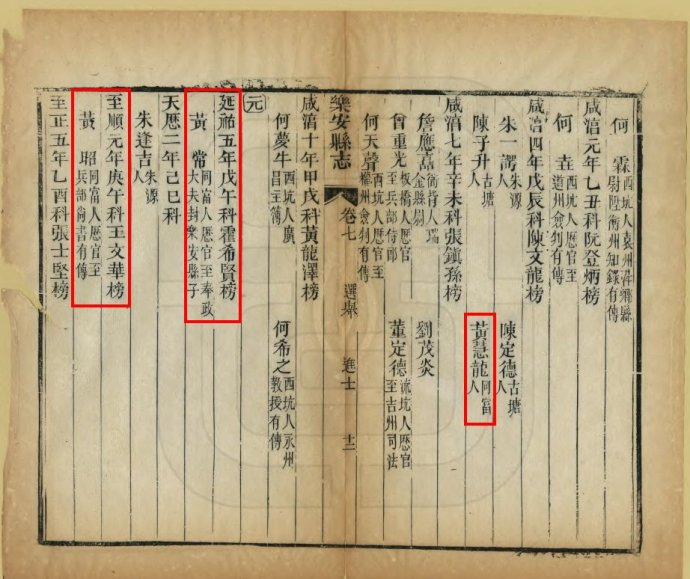 何 霖 西坑人袁州萍鄉縣尉陞衡州知錄有傳
咸淳元年乙丑科阮登炳榜
何 西坑人歷官至道州僉判有傳
咸淳四年戊辰科陳文龍榜
朱一諤 朱源人 陳定德 古塘人
陳子升 古塘人 黃慧龍 同富人
咸淳七年辛未科張鎮孫榜
詹應嘉 衙背人瑞金縣尉 劉茂炎
曾重光 板橋人歷官至兵部侍郎 董定德 流坑人歷官至吉州司法
何天聲 西坑人歷官至權州僉判有傳
樂安縣志 卷七 選舉 進士 十一
咸淳十年甲戌科黃龍澤榜
何夢牛 西坑人廣昌主簿 何希之 西坑人永州教授有傳
元
延祐五年戊午科霍希賢榜
黃 常 同富人歷官至奉政大夫封樂安縣子
天歷二年己巳科
朱逢吉 朱源人
至順元年庚午科王文華榜
黃 昭 同富人歷官至兵部尚書有傳
至正五年乙酉科張士堅榜